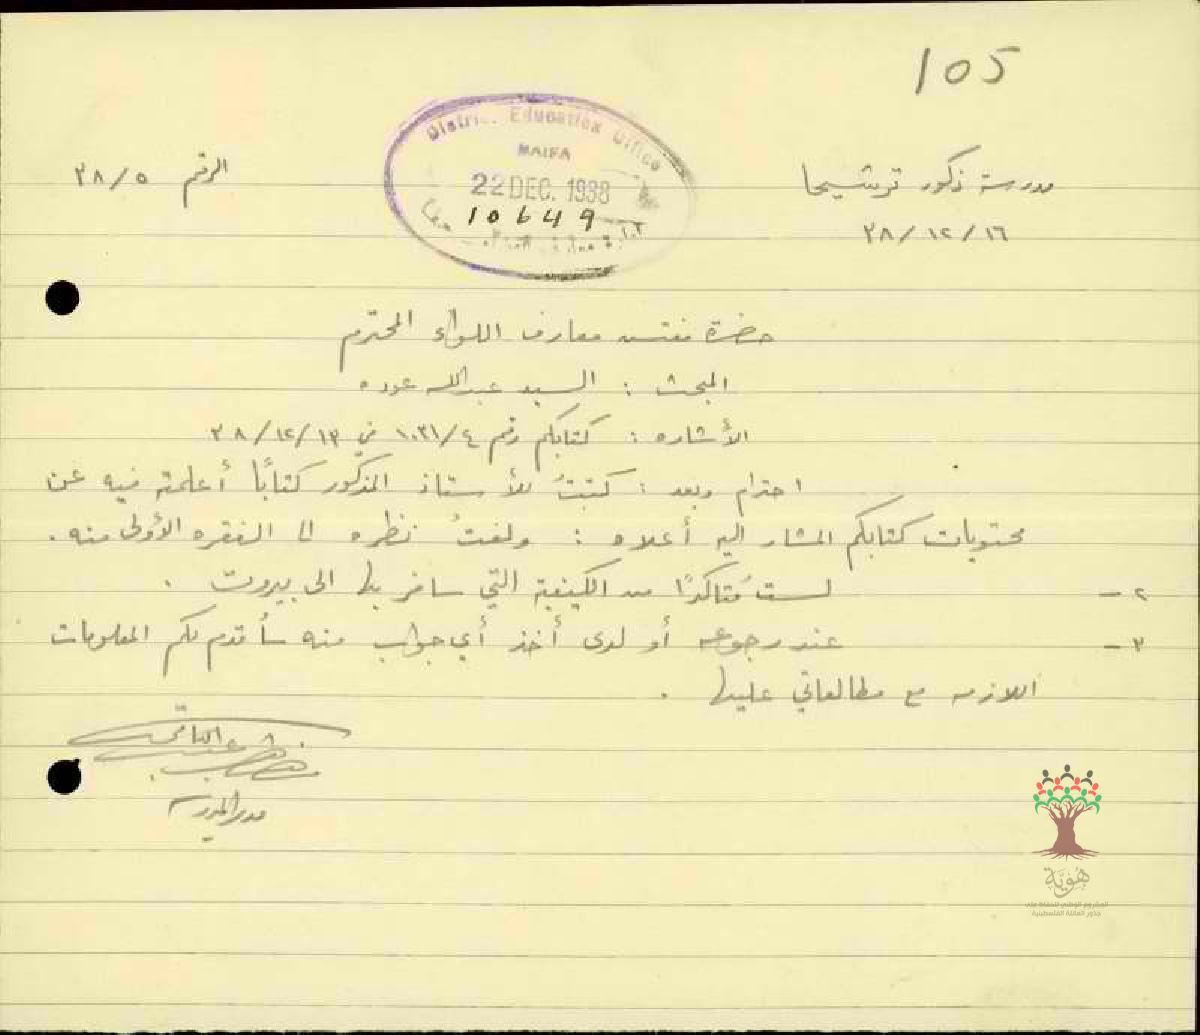 105
District Education Office
HAIFA
22 DEC. 1938
10649
مدرسة ذكور ترشيحا
الرقم ٣٨/٥
٣٨/١٢/١٦
حضرة مفتش معارف اللواء المحترم
المبحث : السيد عبدالله عوده
الأشاره : كتابكم رقم ١٠٣١/٤ في ٣٨/١٢/١٣
احترام وبعد : كتبتُ للأستاذ المذكور كتابًا أعلمته فيه عن
محتويات كتابكم المشار اليه أعلاه : ولفتُ نظره الى الفقره الأولى منه .
٢- لست مُتاكدًا من الكيفية التي سافر بها الى بيروت .
٣- عند رجوعه أو لدى أخذ أي جواب منه سأقدم لكم المعلومات
اللازمه مع مطالعاتي عليها .
مدير المدرسة
هُويَّة
المشروع الوطني للحفاظ على
جذور العائلة الفلسطينية